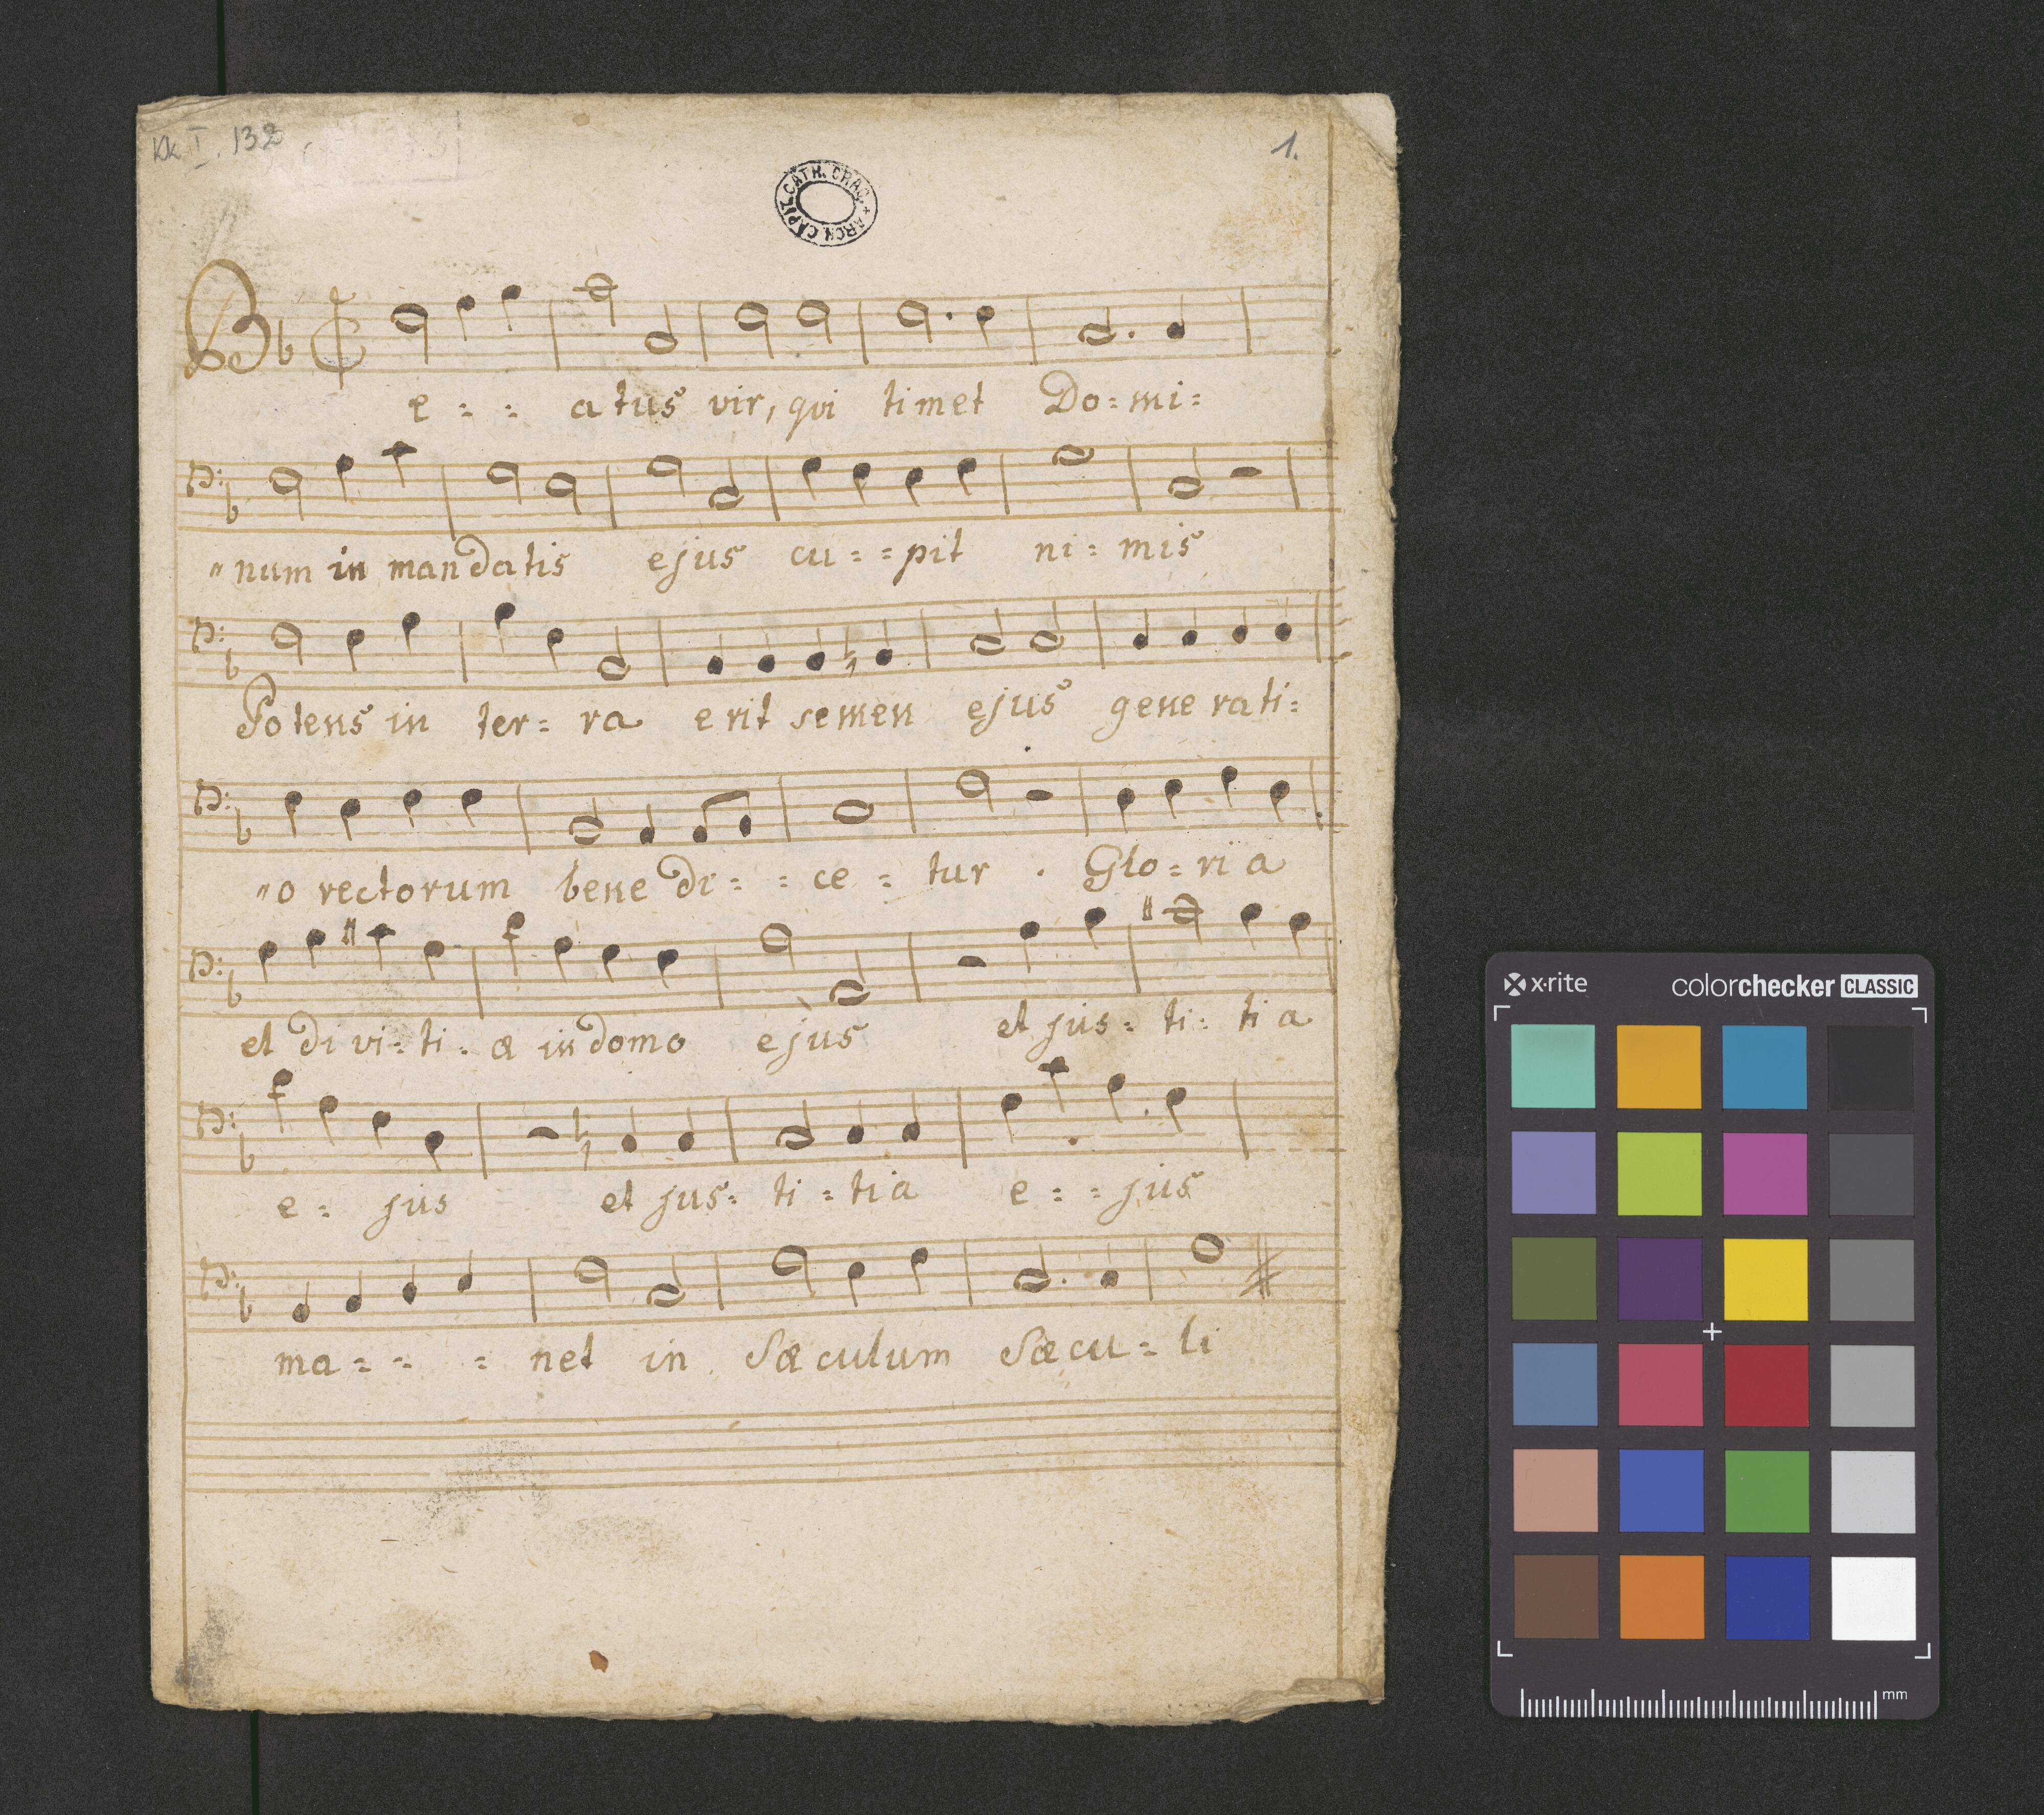 Kk I. 132
1.
ARCH. CAPIT. CATH. CRAC.
Be - - atus vir, qui timet Do - mi -
"num in mandatis ejus cu - - pit ni - mis
Potens in ter - ra erit semen ejus generati -
"o rectorum benedi - - ce - tur . Glo - ria
et divi - ti - æ in domo ejus et jus - ti - tia
e - jus et jus - ti - tia e - - jus
ma - - - net in Sæculum Sæcu - li
x·rite colorchecker CLASSIC
mm